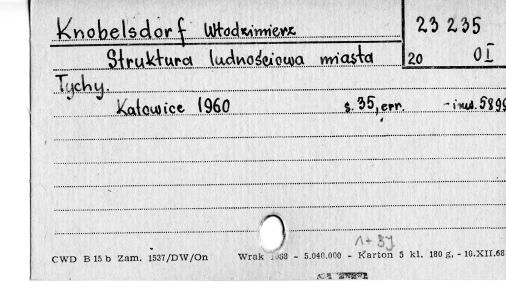 Knobelsdorf Włodzimierz
23 235
Struktura ludnościowa miasta
20 OI
Tychy.
Katowice 1960 s. 35, err. - inw. 5899
1+3j
CWD B 15 b Zam. 1537/DW/On Wrak 1968 - 5.040.000 - Karton 5 kl. 180 g, - 10.XII.68